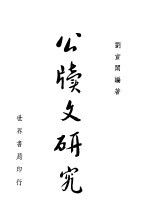 劉宣閣編著
公牘文研究
世界書局印行